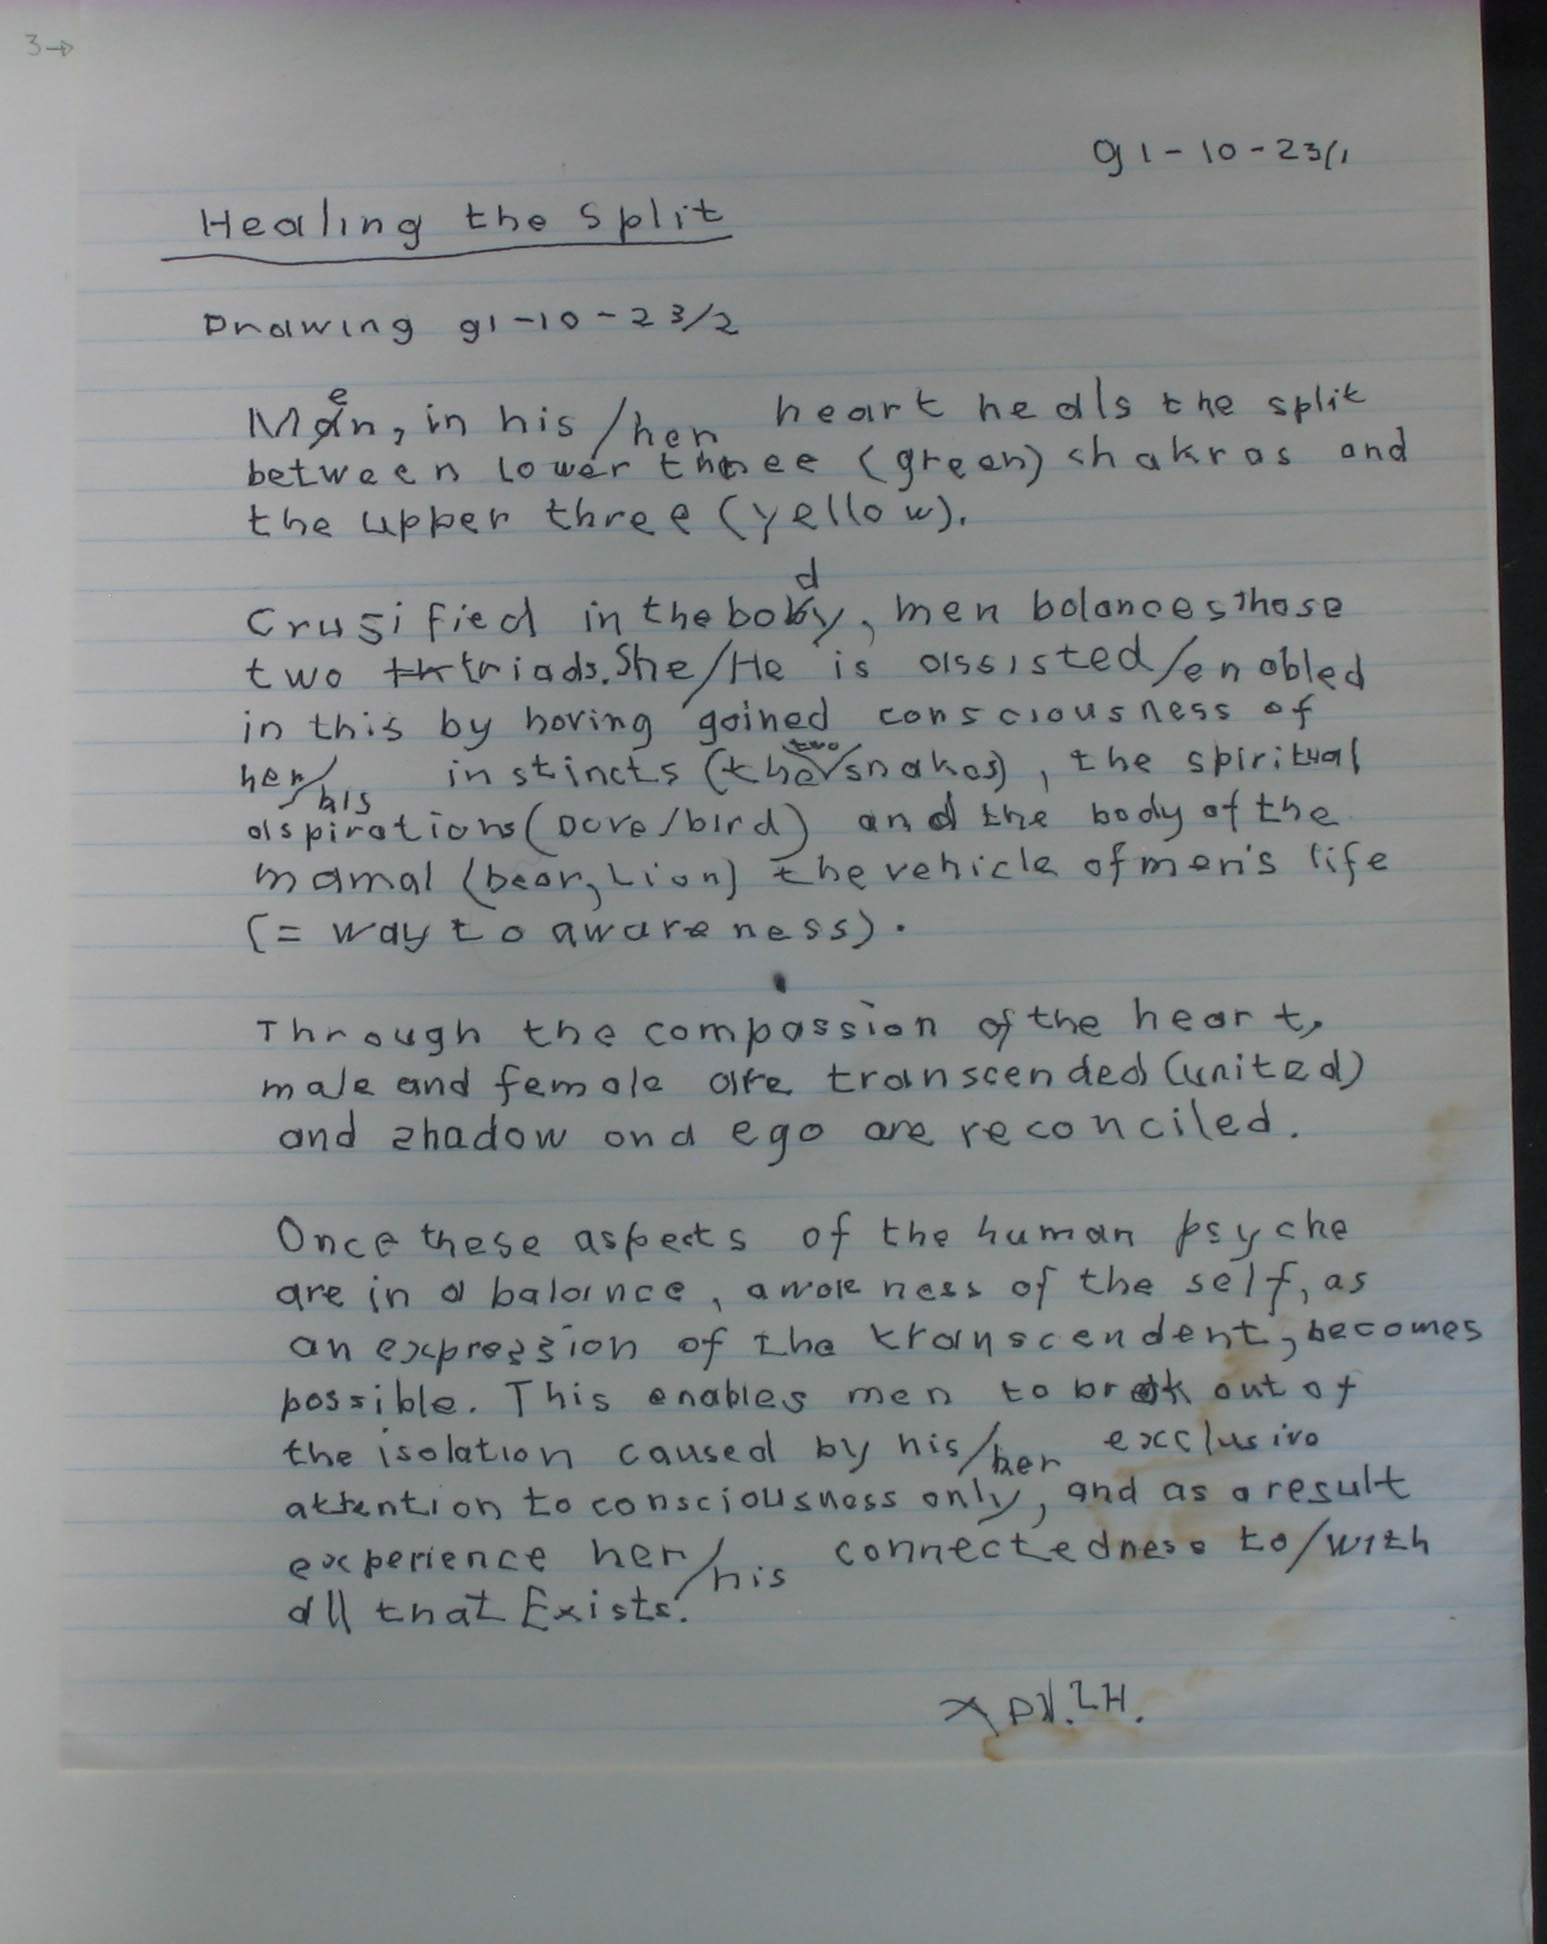 3→
91-10-23/1
Healing the split
Drawing 91-10-23/2
Men, in his/her heart heals the split
between lower three (green) chakras and
the upper three (yellow).
Crusified in the body, men balances those
two triads. She/He is assisted/enabled
in this by having gained consciousness of
her/his instincts (the two snakes), the spiritual
aspirations (Dove/bird) and the body of the
mamal (bear, Lion) the vehicle of men's life
(= way to awareness).
Through the compassion of the heart,
male and female are transcended (united)
and shadow and ego are reconciled.
Once these aspects of the human psyche
are in a balance, awareness of the self, as
an expression of the transcendent, becomes
possible. This enables men to break out of
the isolation caused by his/her exclusive
attention to consciousness only, and as a result
experience her/his connectedness to/with
all that Exists.